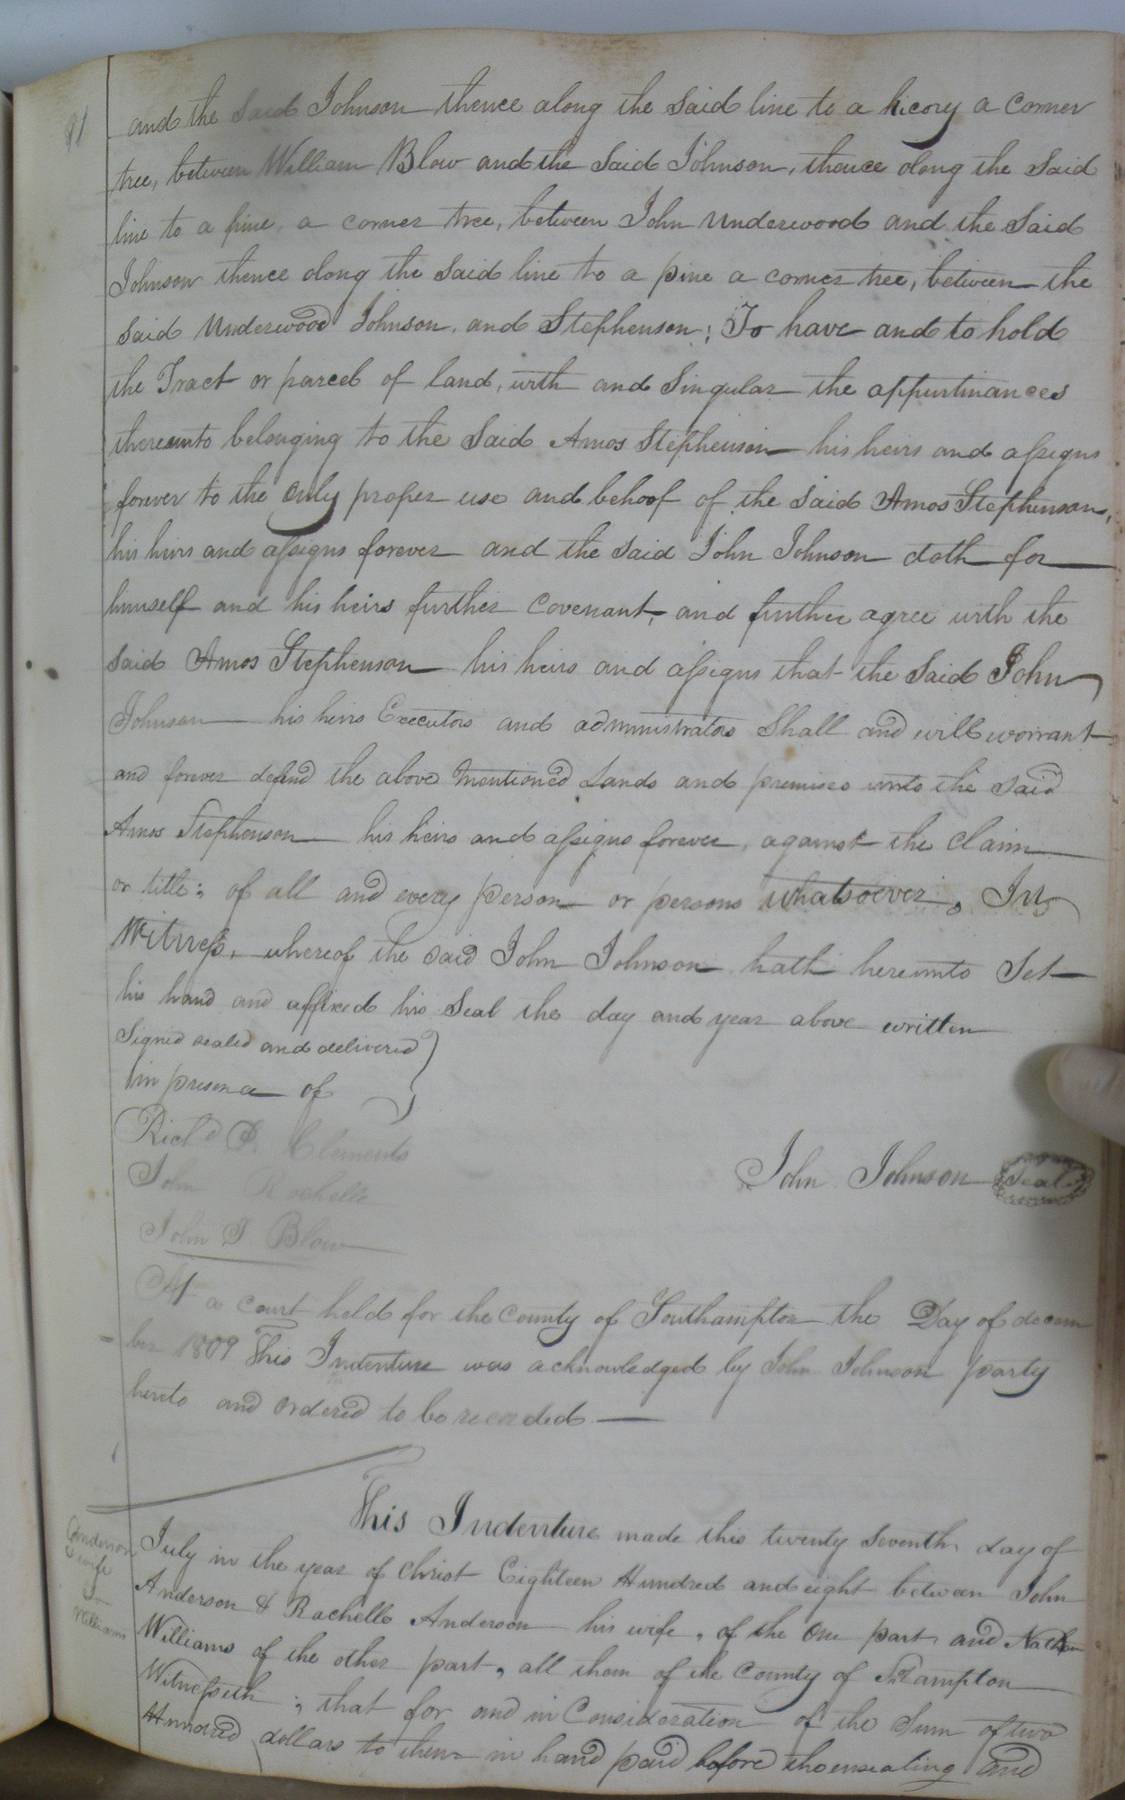 91
and the Said Johnson thence along the Said line to a hicory a Corner
tree, between William Blow and the Said Johnson, thence along the Said
line to a pine, a corner tree, between John Underwood and the Said
Johnson thence along the said line to a pine a corner tree, between the
Said Underwood Johnson, and Stephenson; To have and to hold
the Tract or parcel of land, with and Singular the appurtinances
thereunto belonging to the Said Amos Stephenson his heirs and assigns
forever to the only proper use and behoof of the said Amos Stephenson,
his heirs and assigns forever and the said John Johnson doth for
himself and his heirs further Covenant, and further agree with the
said Amos Stephenson his heirs and assigns that the Said John
Johnson his heirs Executors and administrators Shall and will warrant
and forever defend the above mentioned Lands and premises unto the said
Amos Stephenson his heirs and assigns forever, against the Claim
or title; of all and every person or persons whatsoever. In
Witness, whereof the said John Johnson hath hereunto Set
his hand and affixed his Seal the day and year above written
Signed sealed and delivered
in presence of
Rich'd Clements
John Rochelle
John T Blow
John Johnson Seal
At a court held for the county of Southampton the Day of decem
ber 1809 This Indenture was acknowledged by John Johnson party
hereto and ordered to be recorded
This Indenture made this twenty Seventh day of
Anderson
& wife
to
Williams
July in the year of Christ Eighteen Hundred and eight between John
Anderson & Rachelle Anderson his wife, of the One part and Nathan
Williams of the other part, all them of the County of S.Hampton
Witnesseth; that for and in Consideration of the Sum of two
Hundred dollars to them in hand paid before the ensealing and